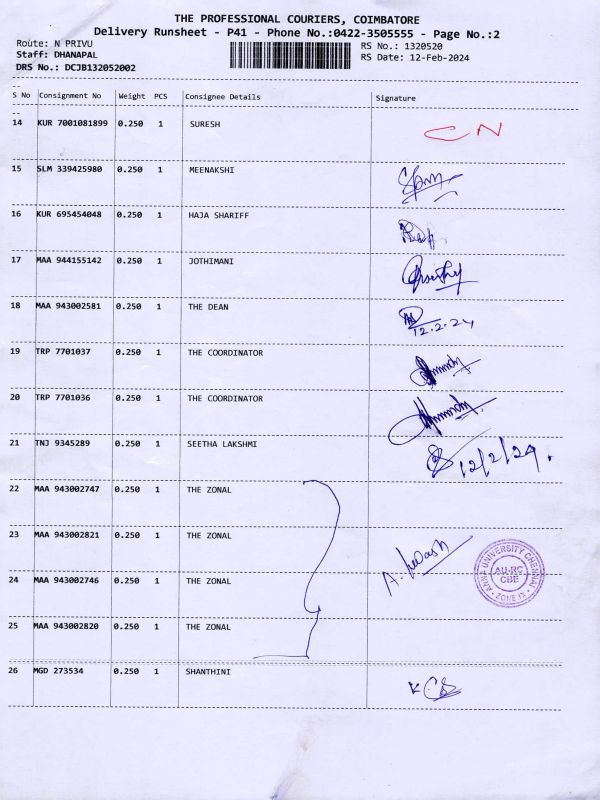 THE PROFESSIONAL COURIERS, COIMBATORE
Delivery Runsheet - P41 - Phone No.:0422-3505555 - Page No.:2
Route: N PRIVU RS No.: 1320520
Staff: DHANAPAL RS Date: 12-Feb-2024
DRS No.: DCJB132052002
S No Consignment No Weight PCS Consignee Details Signature
14 KUR 7001081899 0.250 1 SURESH CN
15 SLM 339425980 0.250 1 MEENAKSHI
16 KUR 695454048 0.250 1 HAJA SHARIFF
17 MAA 944155142 0.250 1 JOTHIMANI
18 MAA 943002581 0.250 1 THE DEAN 12.2.24
19 TRP 7701037 0.250 1 THE COORDINATOR
20 TRP 7701036 0.250 1 THE COORDINATOR
21 TNJ 9345289 0.250 1 SEETHA LAKSHMI 12/2/24.
22 MAA 943002747 0.250 1 THE ZONAL
23 MAA 943002821 0.250 1 THE ZONAL
24 MAA 943002746 0.250 1 THE ZONAL
25 MAA 943002820 0.250 1 THE ZONAL
ANNA UNIVERSITY CHENNAI
AU-RC
CBE
ZONE IX
26 MGD 273534 0.250 1 SHANTHINI